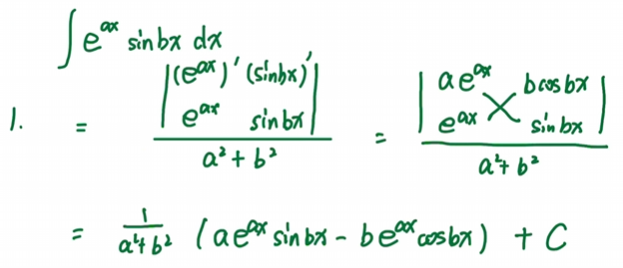 ∫ e^{ax} sin bx dx
1. = \frac{\begin{vmatrix} (e^{ax})' & (sin bx)' \\ e^{ax} & sin bx \end{vmatrix}}{a² + b²} = \frac{\begin{vmatrix} ae^{ax} & b cos bx \\ e^{ax} & sin bx \end{vmatrix}}{a² + b²}
= \frac{1}{a² + b²} (ae^{ax} sin bx - be^{ax} cos bx) + C